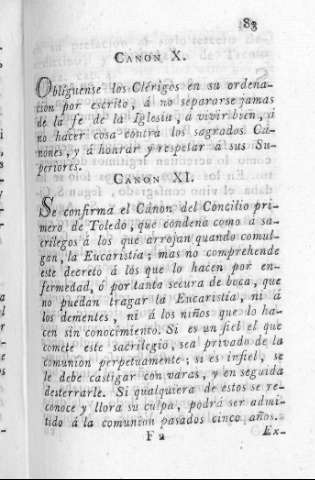 83
CANON X.
Obliguense los Clérigos en su ordena-
cion por escrito, á no separarse jamas
de la fe de la Iglesia, á vivir bien, á
no hacer cosa contra los sagrados Cá-
nones, y á honrar y respetar á sus Su-
periores.
CANON XI.
Se confirma el Cánon del Concilio pri-
mero de Toledo, que condena como á sa-
crilegos á los que arrojan quando comul-
gan, la Eucaristía; mas no comprehende
este decreto á los que lo hacen por en-
fermedad, ó por tanta secura de boca, que
no puedan tragar la Eucaristía, ni á
los dementes, ni á los niños que lo ha-
cen sin conocimiento. Si es un fiel el que
comete este sacrilegio, sea privado de la
comunion perpetuamente; si es infiel, se
le debe castigar con varas, y en seguida
desterrarle. Si qualquiera de estos se re-
conoce y llora su culpa, podrá ser admi-
tido á la comunion pasados cinco años.
F 2 Ex-